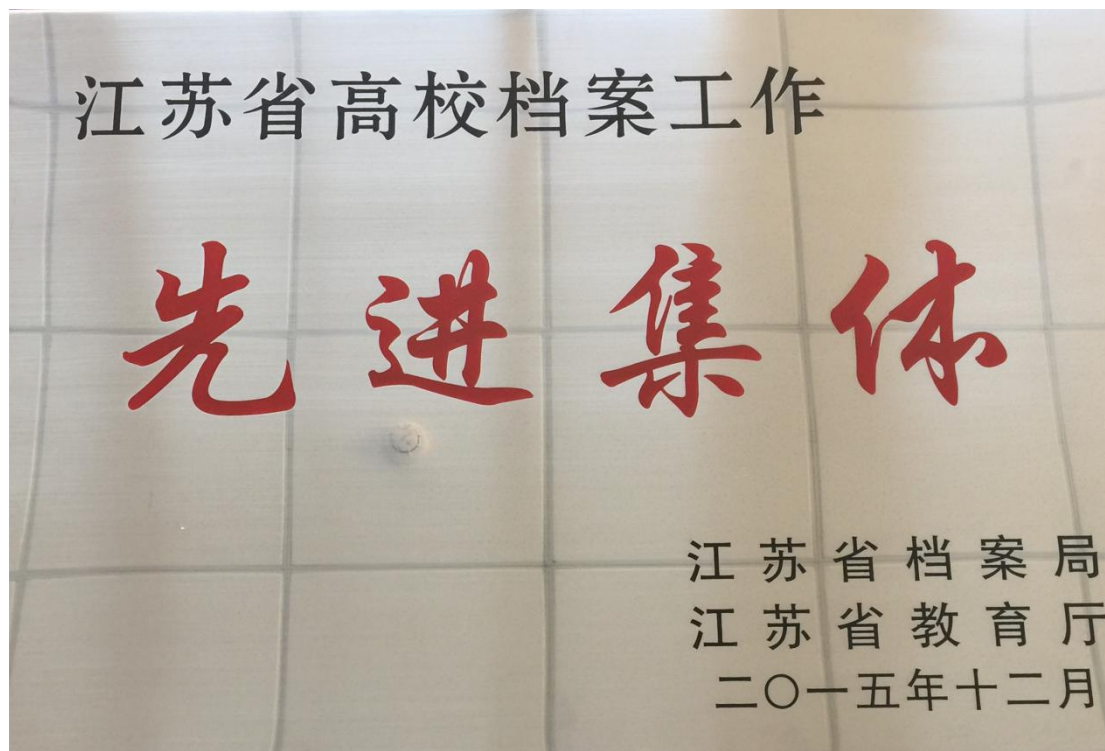 江苏省高校档案工作
先进集体
江苏省档案局
江苏省教育厅
二〇一五年十二月